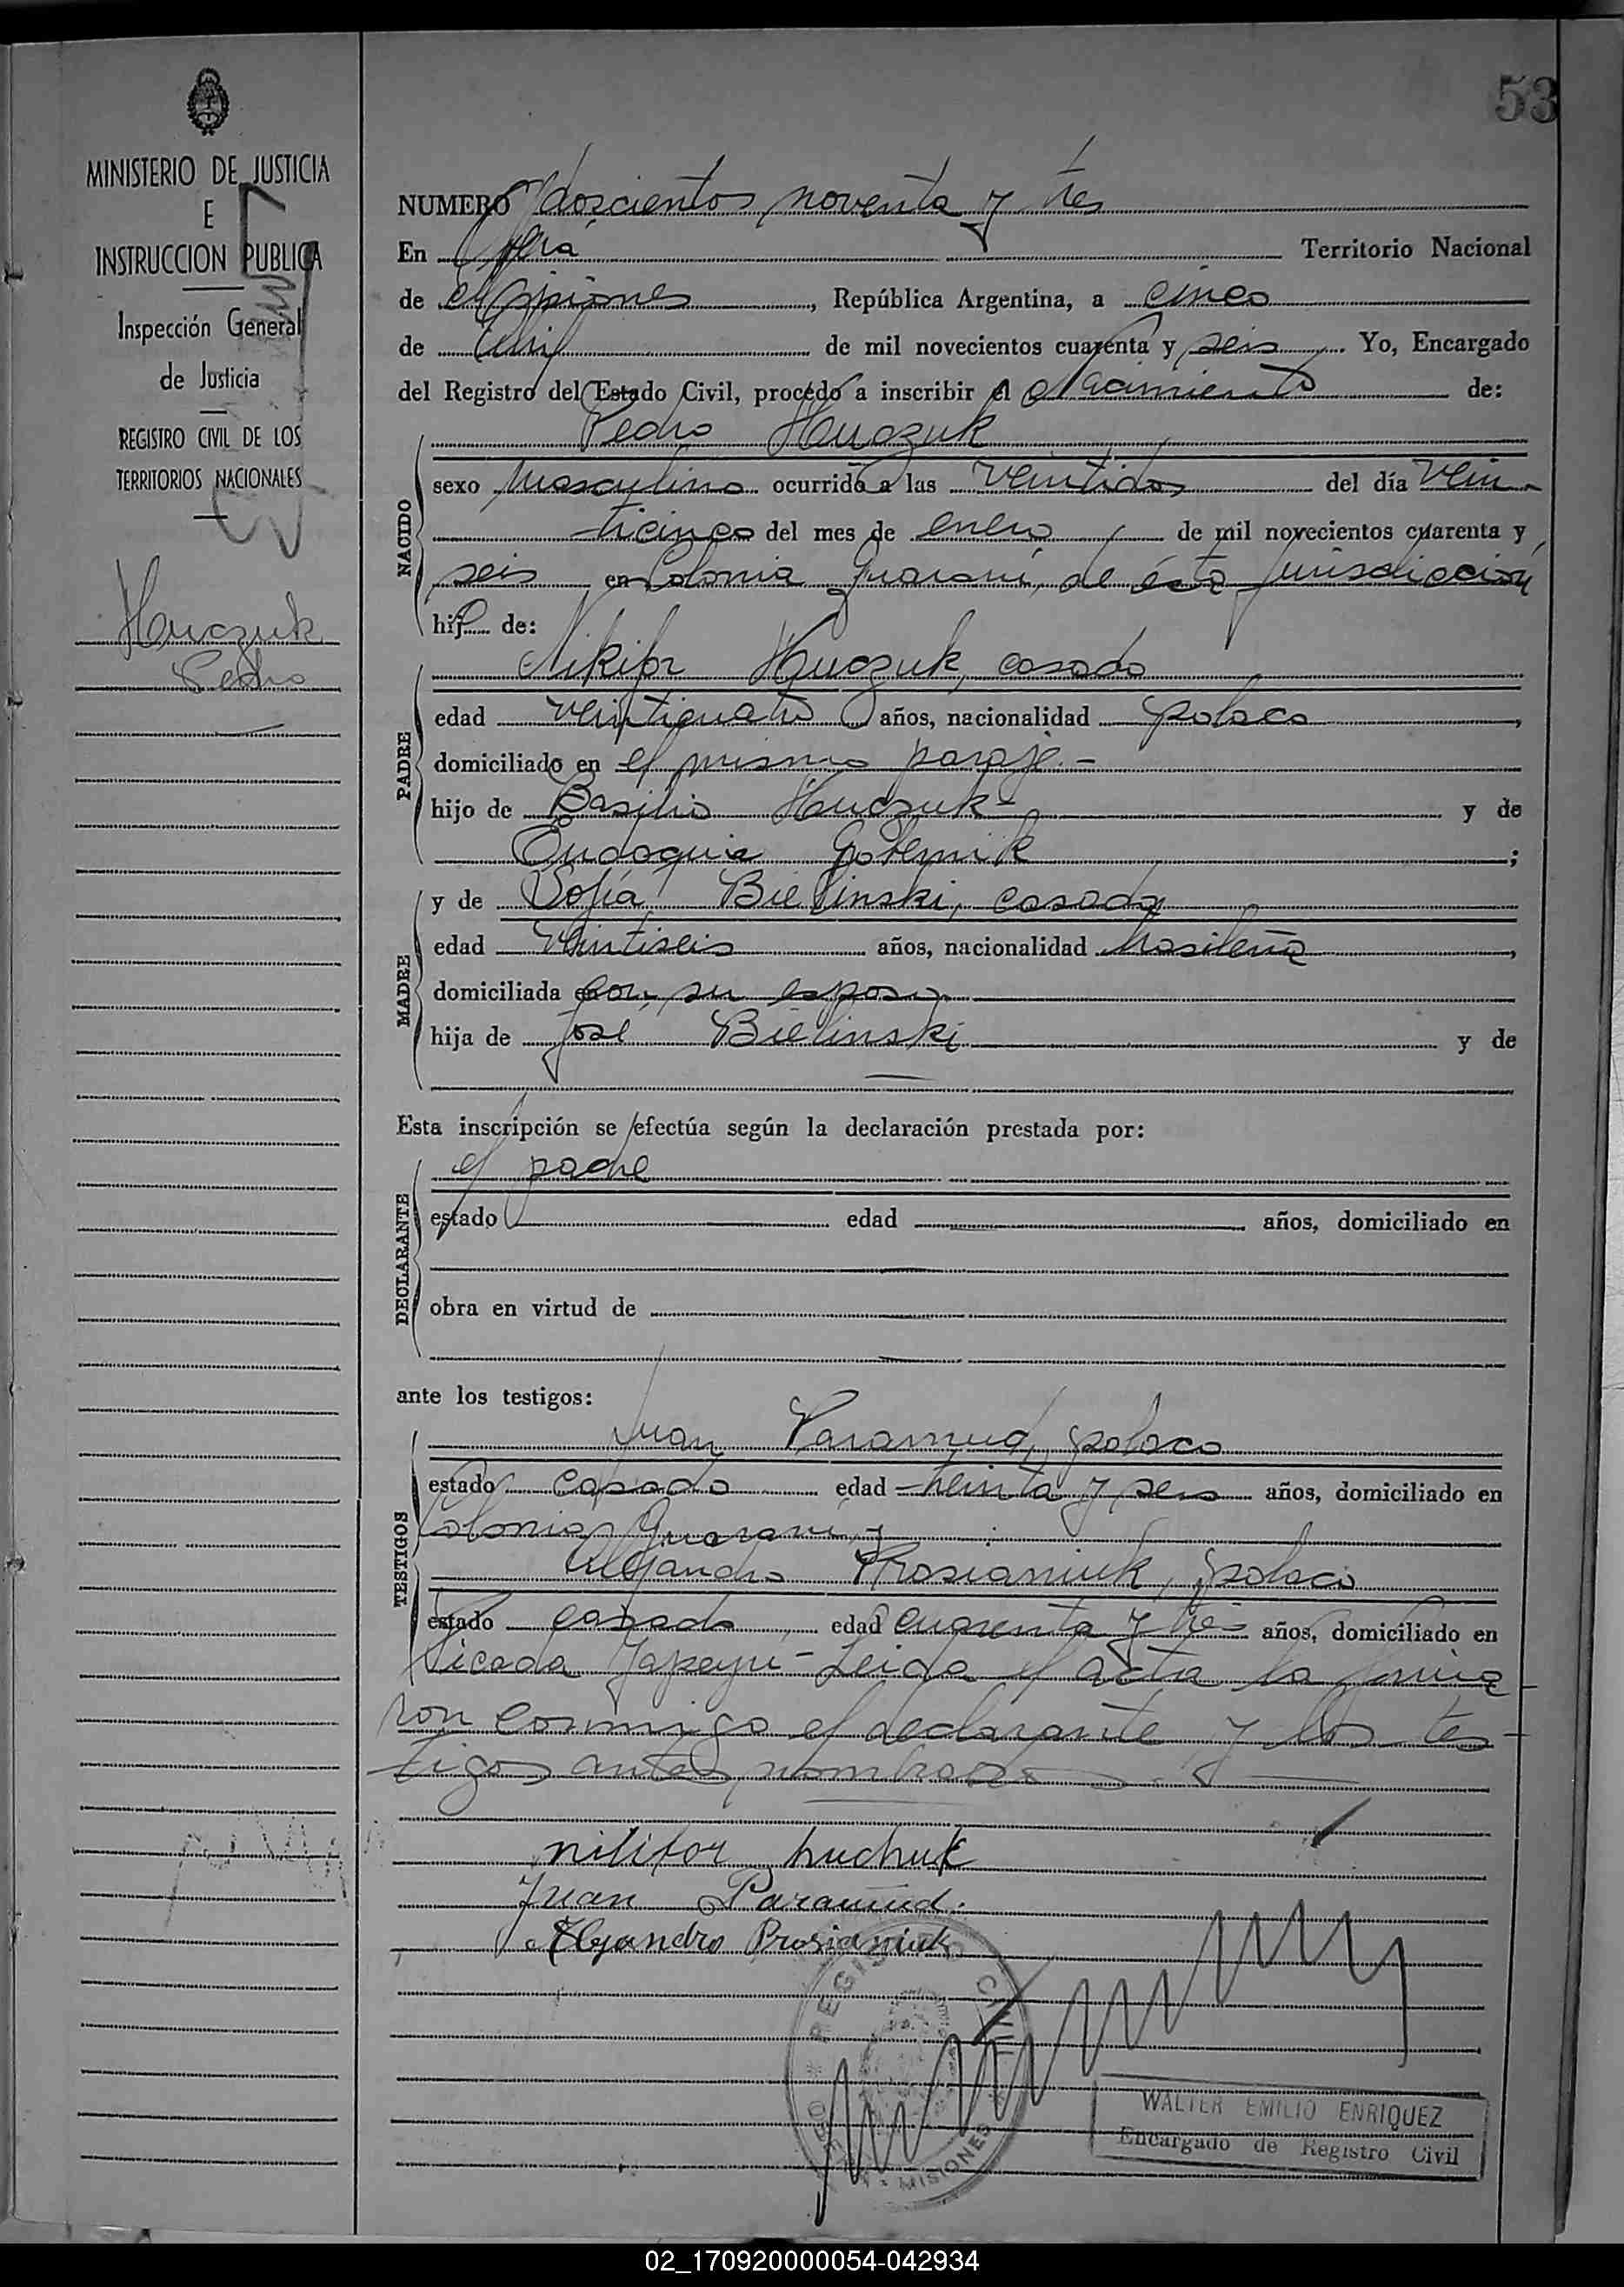 53
MINISTERIO DE JUSTICIA
E
INSTRUCCION PUBLICA
Inspección General
de Justicia
REGISTRO CIVIL DE LOS
TERRITORIOS NACIONALES
Huczuk
Pedro
NUMERO doscientos noventa y tres
En Oberá Territorio Nacional
de Misiones, República Argentina, a cinco
de Abril de mil novecientos cuarenta y seis. Yo, Encargado
del Registro del Estado Civil, procedo a inscribir el Nacimiento de:
Pedro Huczuk
NACIDO
sexo masculino ocurrido a las veintidos del día vein-
ticinco del mes de enero de mil novecientos cuarenta y
seis en Colonia Guaraní, de ésta jurisdiccion
hijo de:
PADRE
Nikifor Huczuk, casado
edad veinticuatro años, nacionalidad polaco,
domiciliado en el mismo paraje.-
hijo de Basilio Huczuk- y de
Eudoquia ;
MADRE
y de Sofía Bielinski, casada
edad veintiseis años, nacionalidad brasileña,
domiciliada con su esposo
hija de José Bielinski y de
Esta inscripción se efectúa según la declaración prestada por:
DECLARANTE
el padre
estado edad años, domiciliado en
obra en virtud de
ante los testigos:
TESTIGOS
Juan Paramud, polaco
estado casado edad treinta y seis años, domiciliado en
Colonia Guaraní y
Alejandro Prosianiuk, polaco
estado casado edad cuarenta y tres años, domiciliado en
Picada Yapeyú - Leida el acta la firma
ron conmigo el declarante y los tes-
tigos antes nombrados.
nikifor huchuk
Juan Paramud.
Alejandro Prosianiuk
REGISTRO CIVIL
OBERA - MISIONES
WALTER EMILIO ENRIQUEZ
Encargado de Registro Civil
02_170920000054-042934